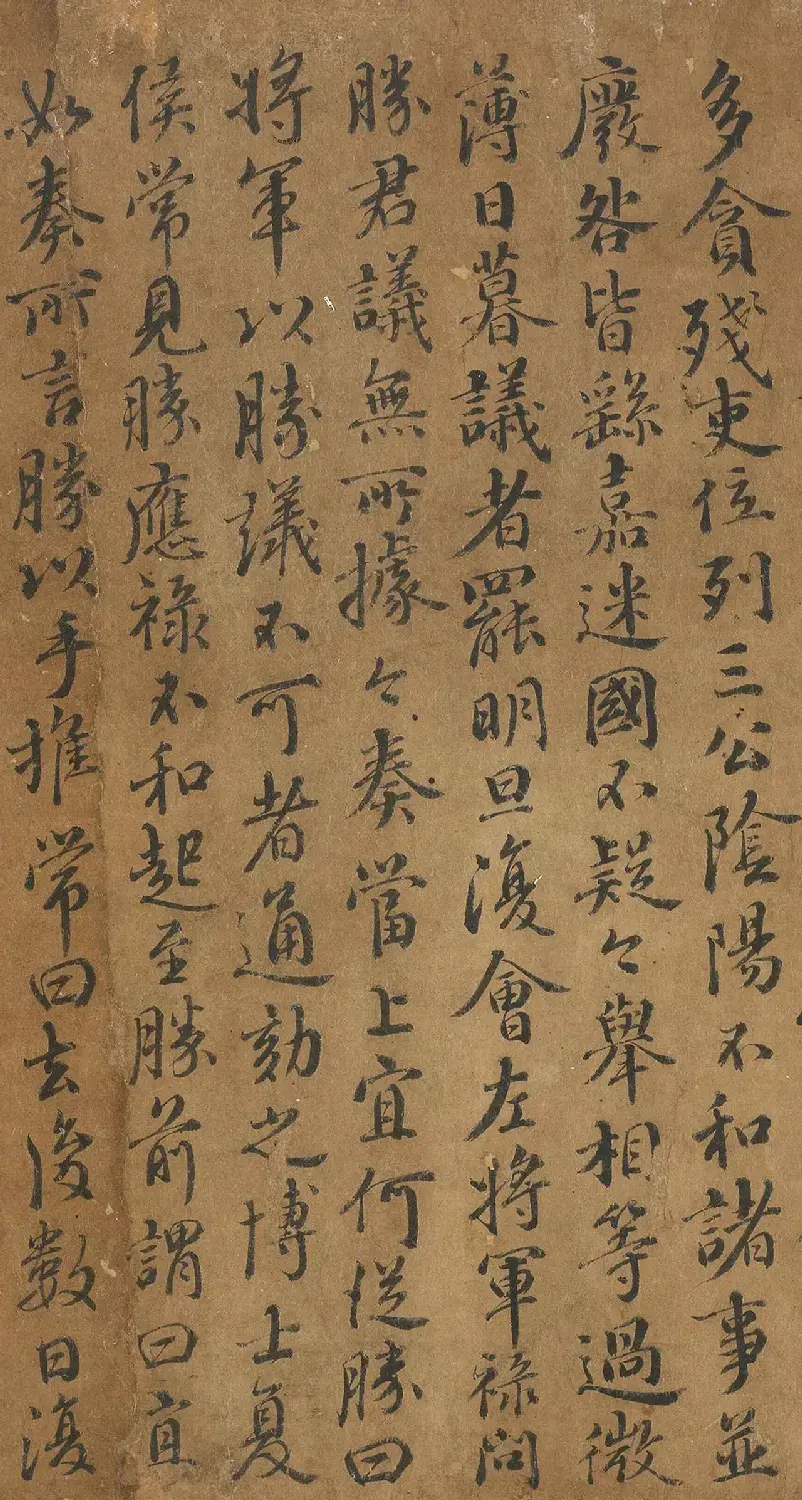 多貪殘吏位列三公陰陽不和諸事並
廢咎皆繇嘉迷國不疑〻舉相等過微
薄日暮議者罷明旦復會左將軍祿問
勝君議無所據〻奏當上宜何從勝曰
將軍以勝議不可者通劾之博士夏
侯常見勝應祿不和起至勝前謂曰宜
如奏所言勝以手推常曰去後數日復